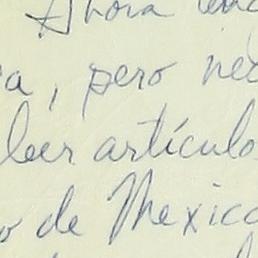 Ahora
a, pero nec
leer artículo
o de Mexico